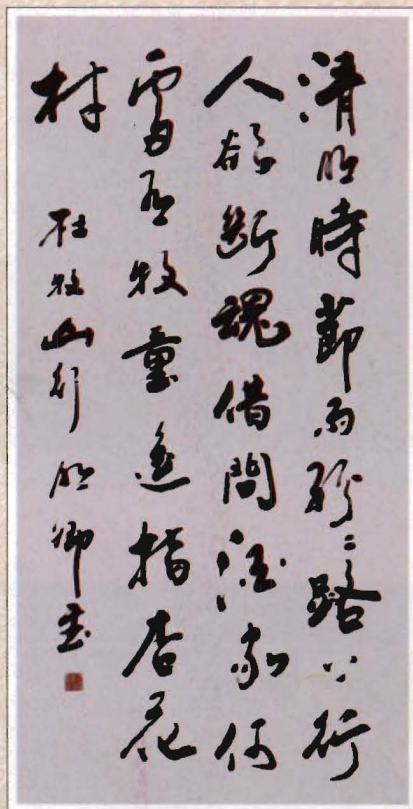 清明時節雨紛〻路上行
人欲断魂借問酒家何
處有牧童遥指杏花
村 杜牧山行 明卿書